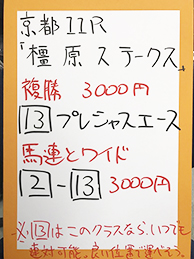 京都11R
「橿原ステークス」
複勝 3000円
13 プレシャスエース
馬連とワイド
2-13 3000円
※13はこのクラスなら、いつでも
連対可能。良い位置で運べそう。